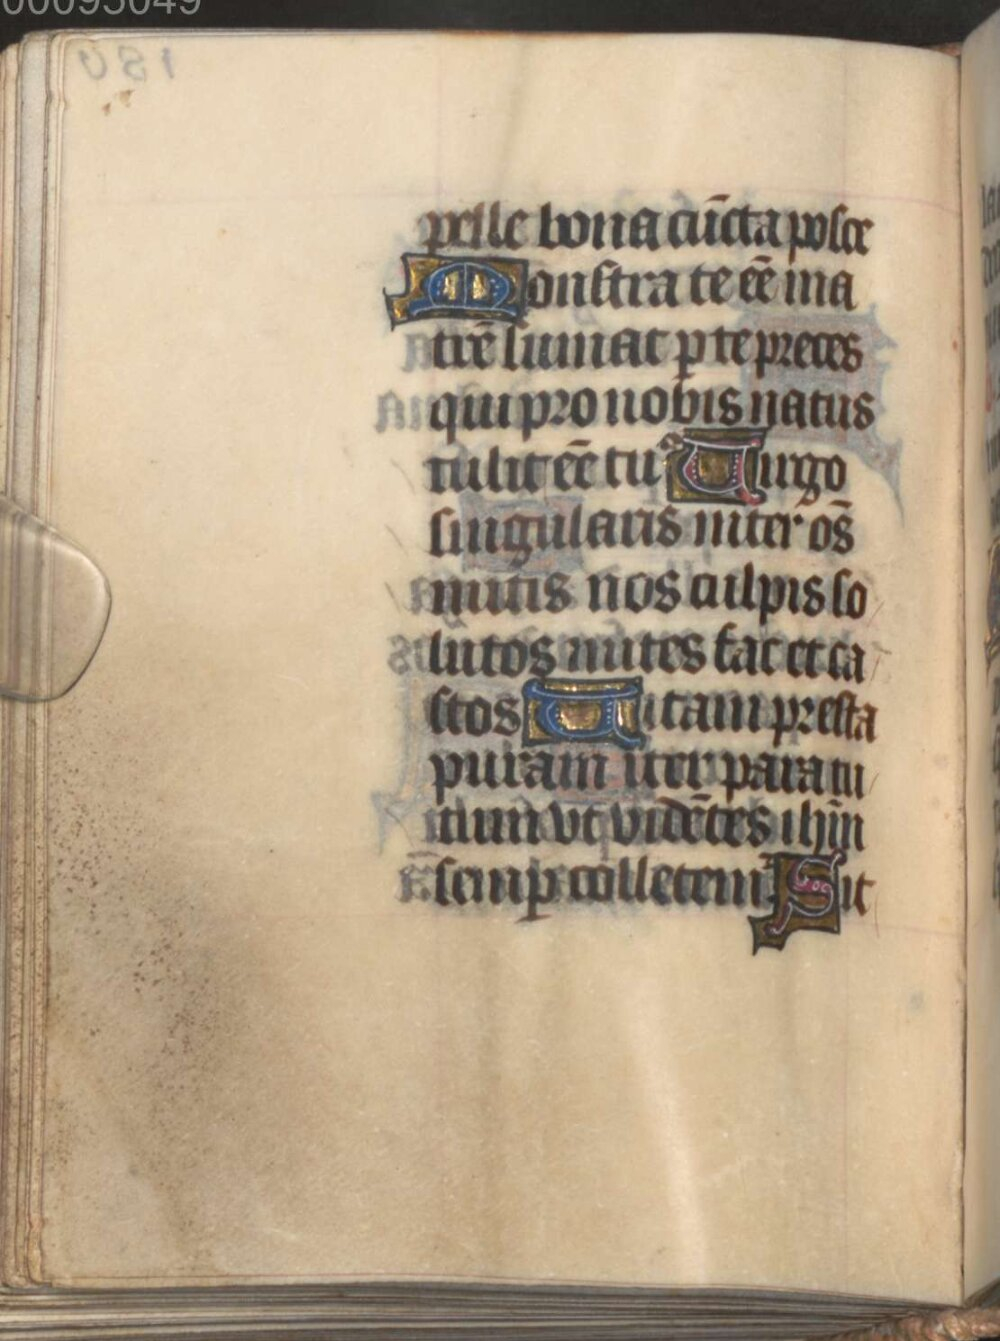 00093049
pelle bona cūcta posce
Monstra te eē ma
trē sumat p te preces
qui pro nobis natus
tulit eē tuꝰ Uirgo
singularis inter os̄
mitis nos culpis so
lutos mites fac et ca
stos Uitam presta
puram iter para tu
tum vt vidētes ihm̄
semp colletemꝰ Sit